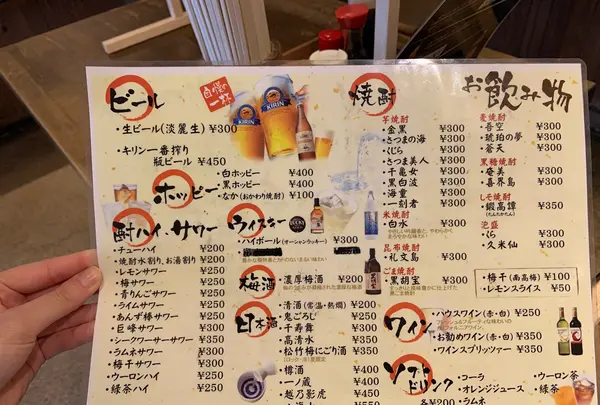 お飲み物
ビール
自慢の一杯
・生ビール(淡麗生) ¥300
・キリン一番搾り
瓶ビール ¥450
KIRIN
KIRIN
ホッピー
・白ホッピー ¥400
・黒ホッピー ¥400
・なか(おかわり焼酎) ¥100
酎ハイ・サワー
・チューハイ ¥200
・焼酎水割り、お湯割り ¥200
・レモンサワー ¥250
・梅サワー ¥250
・青りんごサワー ¥250
・ライムサワー ¥250
・あんず梅サワー ¥250
・巨峰サワー ¥300
・シークワーサーサワー ¥350
・ラムネサワー ¥300
・梅干サワー ¥350
・ウーロンハイ ¥250
・緑茶ハイ ¥250
ウイスキー
・ハイボール(オーシャンラッキー) ¥300
¥350
梅酒
・濃厚梅酒 ¥200
日本酒
・清酒(常温・熱燗) ¥200
・鬼ごろし ¥250
・千寿舞 ¥300
・高清水 ¥350
・松竹梅にごり酒 ¥350
(ロック・冷)
・樽酒 ¥400
・一ノ蔵 ¥450
・越乃影虎 ¥350
焼酎
芋焼酎
・金黒 ¥300
・さつまの海 ¥300
・くじら ¥300
・さつま美人 ¥300
・千亀女 ¥300
・黒白波 ¥300
・海童 ¥300
・一刻者 ¥300
米焼酎
・白水 ¥300
昆布焼酎
・礼文島 ¥300
ごま焼酎
・黒胡宝 ¥300
麦焼酎
・吾空 ¥300
・琥珀の夢 ¥300
・蒼天 ¥300
黒糖焼酎
・奄美 ¥300
・喜界島 ¥300
しそ焼酎
・鍛高譚 ¥350
(たんたかたん)
泡盛
・花 ¥300
・久米仙 ¥300
・梅干(南高梅) ¥100
・レモンスライス ¥50
ワイン
・ハウスワイン(赤・白) ¥300
・お勧めワイン(赤・白) ¥350
・ワインスプリッツァー ¥350
ソフトドリンク
各¥200
・コーラ
・オレンジジュース
・ラムネ
・ウーロン茶
・緑茶